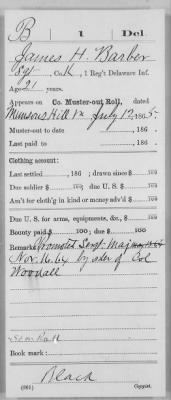 B | 1 | Del.
James H. Barber
Sgt, Co. K, 1 Reg't Delaware Inf.
Age 21 years.
Appears on Co. Muster-out Roll, dated
Munsons Hill Va July 12, 1865.
Muster-out to date , 186 .
Last paid to , 186 .
Clothing account:
Last settled , 186 ; drawn since $ 100
Due soldier $ 100; due U. S. $ 100
Am't for cloth'g in kind or money adv'd $ 100
Due U. S. for arms, equipments, &c., $ 100
Bounty paid $ 100; due $ 100
Remarks: Promoted Sergt. Maj
Nov. 16, 64 by order of Col
Woodall
Roll
Book mark:
Beach
(861) Copyist.